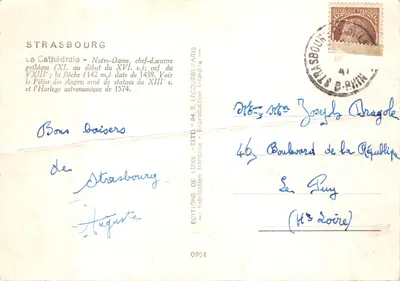 STRASBOURG
La Cathédrale - Notre-Dame, chef-d'œuvre
gothique (XI. au début du XVI. s.); nef du
VXIIIᵉ; la flèche (142 m.) date de 1439. Voir
le Pilier des Anges orné de statues du XIIIᵉ s.
et l'Horloge astronomique de 1574.
Bons baisers
de
Strasbourg
Auguste
EDITIONS DE LUXE
Fabrication française - Reproduction interdite
0901
STRASBOURG
41
B-RHIN
Mʳ Mᵐᵉ Joseph Dragole
46, Boulevard de la République
Le Puy
(Hᵗᵉ Loire)